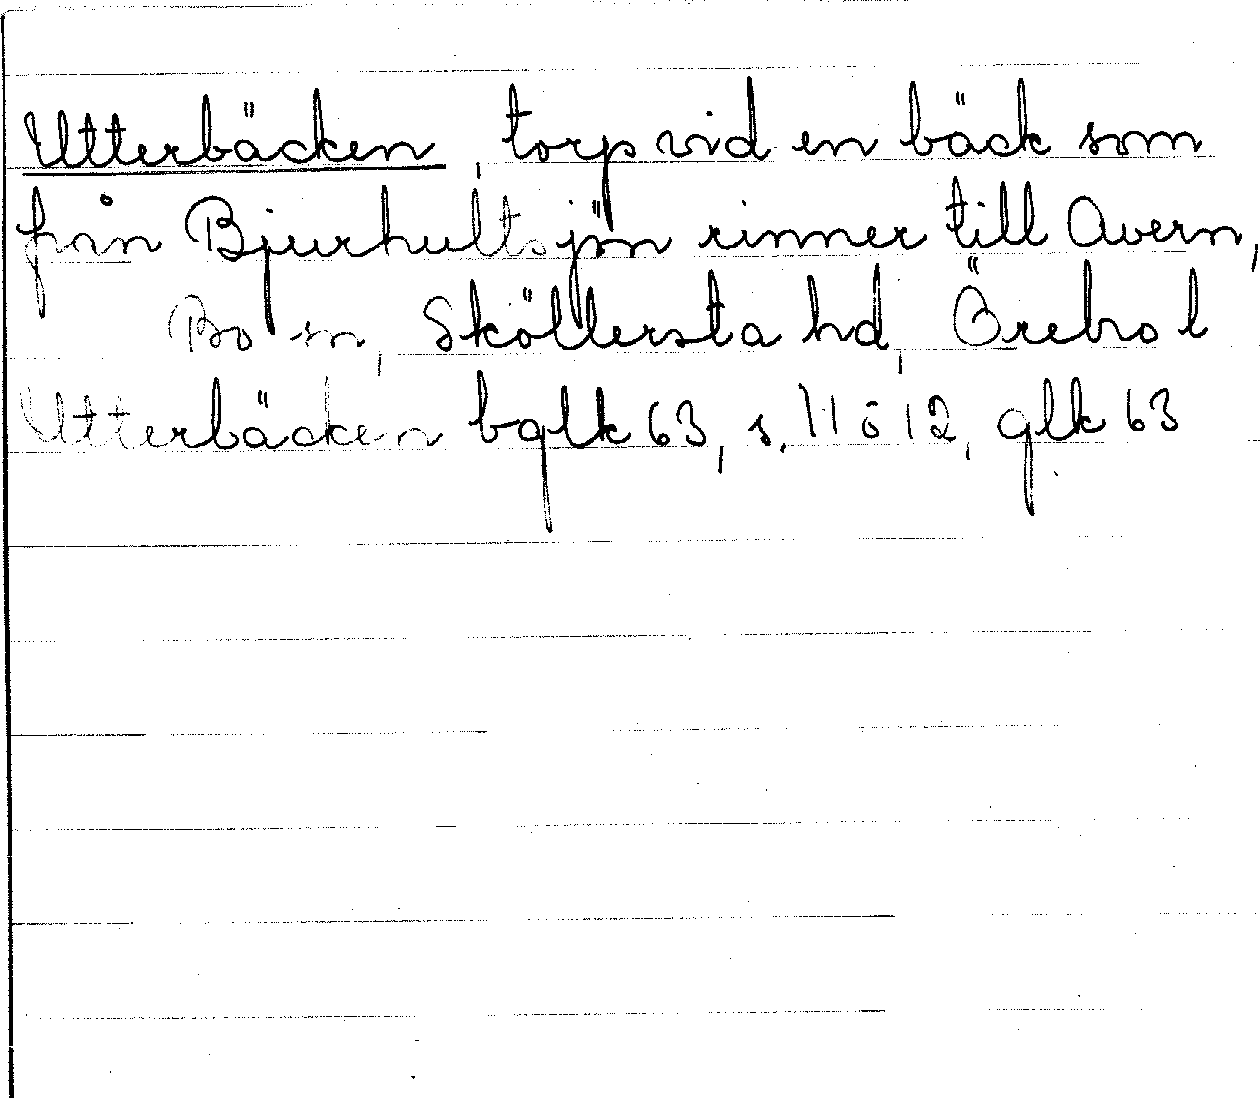 Utterbäcken, torp vid en bäck som
från Bjurhultsjön rinner till Avern,
Bo sn, Sköllersta hd, Örebro l
Utterbäcken bglk 63, s. 11 o 12, glk 63